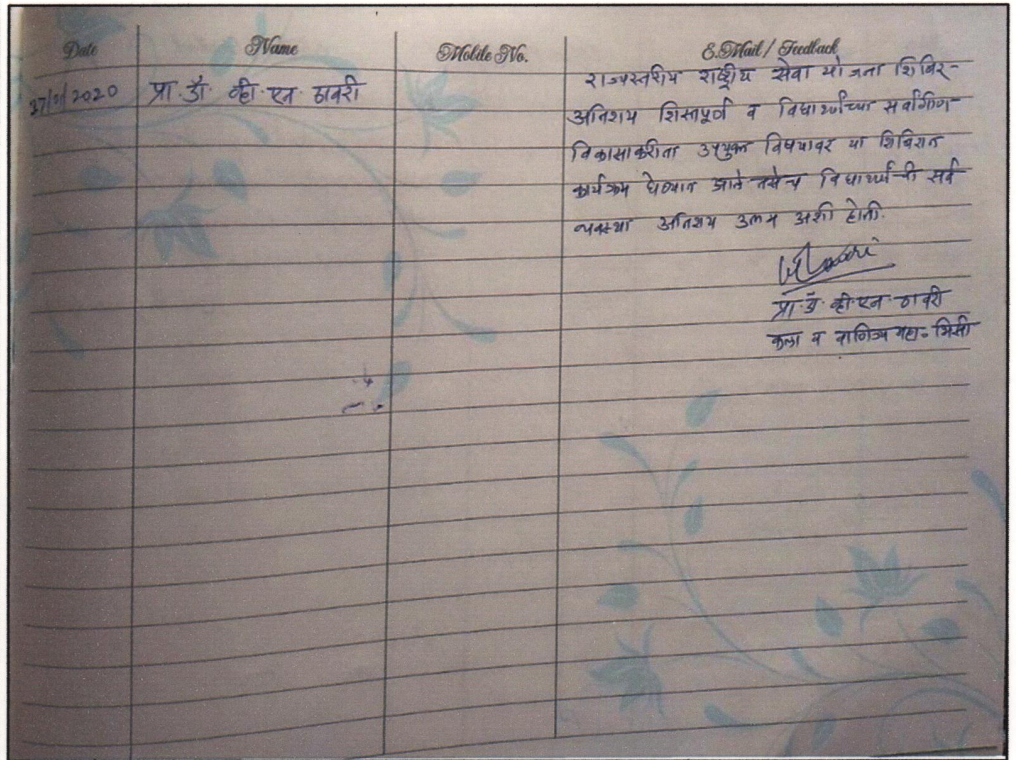 Date Name Mobile No. E.Mail / Feedback
प्रा. डॉ. व्ही. एन. ठावरी
राज्यस्तरीय राष्ट्रीय सेवा योजना शिबिर-
अतिशय शिस्तपूर्ण व विद्यार्थ्यांच्या सर्वांगीण
विकासाकरीता उपयुक्त विषयावर या शिबिरात
कार्यक्रम घेण्यात आले तसेच विद्यार्थ्यांची सर्व
व्यवस्था अतिशय उत्तम अशी होती.
प्रा. डॉ. व्ही. एन. ठावरी
कला व वाणिज्य महा. भिसी